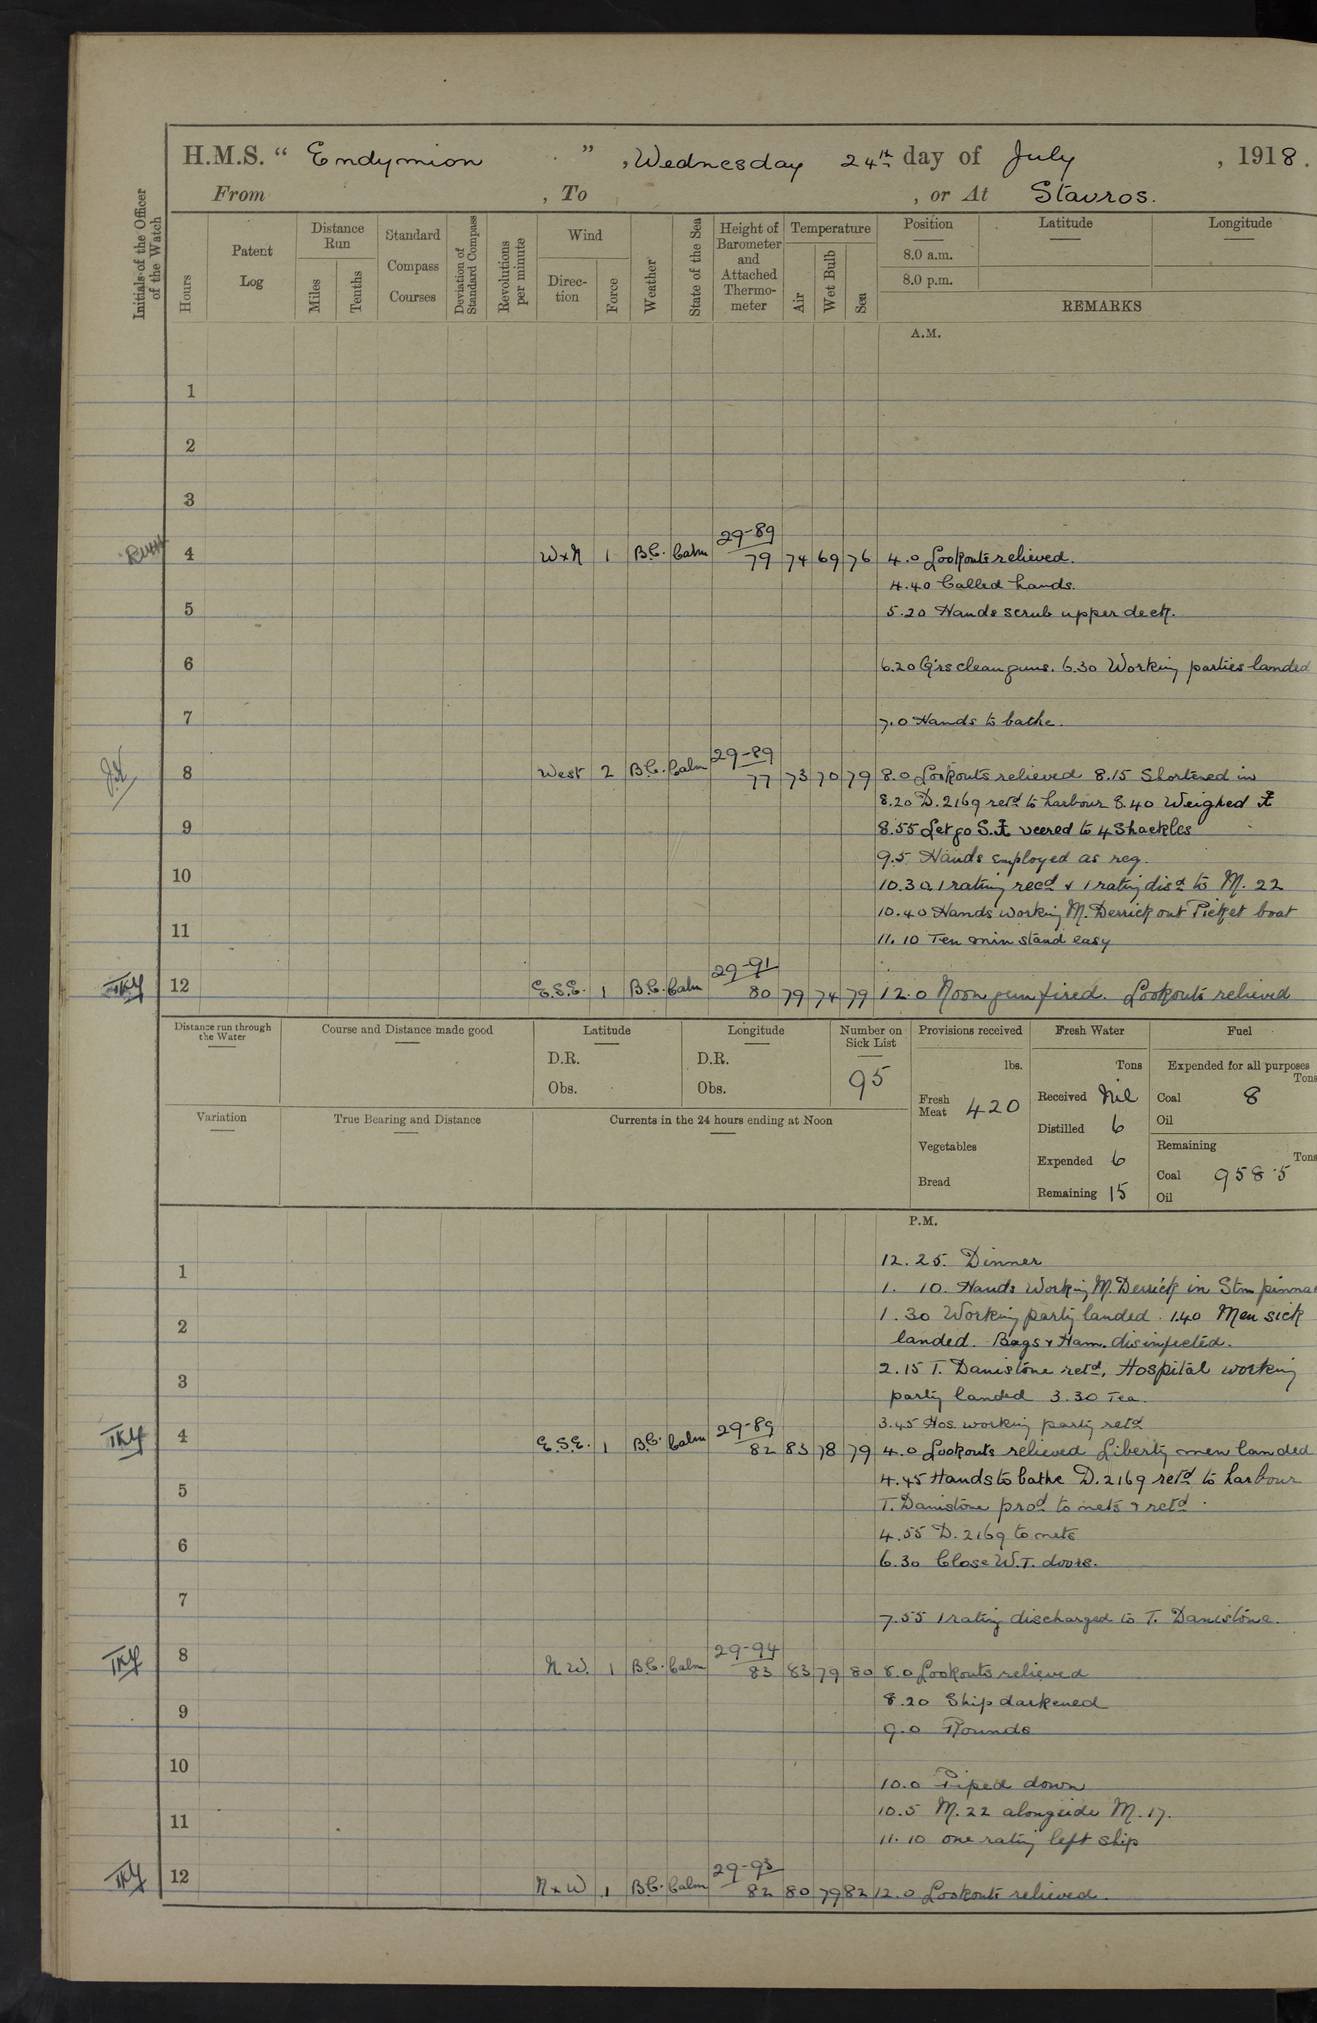 H.M.S. " Endymion " , Wednesday 24th day of July , 1918.
From , To , or At Stavros.
Initials of the Officer of the Watch
Hours
Patent Log
Distance Run
Miles
Tenths
Standard Compass Courses
Deviation of Standard Compass
Revolutions per minute
Wind
Direction
Force
Weather
State of the Sea
Height of Barometer and Attached Thermometer
Temperature
Air
Wet Bulb
Sea
Position
Latitude
Longitude
8.0 a.m.
8.0 p.m.
REMARKS
A.M.
1
2
3
4 W x N 1 B.C. Calm 29-89 79 74 69 76 4.0 Lookouts relieved.
4.40 Called hands.
5 5.20 Hands scrub upper deck.
6 6.20 G'rs clean guns. 6.30 Working parties landed
7 7.0 Hands to bathe.
J.H. 8 West 2 B.C. Calm 29-89 77 73 70 79 8.0 Lookouts relieved 8.15 Shortened in
8.20 D.2169 retd to harbour 8.40 Weighed
9 8.55 Let go S. veered to 4 Shackles
9.5 Hands employed as req.
10 10.30 1 rating recd & 1 rating disd to M. 22
10.40 Hands working M. Derrick out Picket boat
11 11.10 Ten min stand easy
TKY 12 E.S.E. 1 B.C. Calm 29-91 80 79 74 79 12.0 Noon gun fired. Lookouts relieved
Distance run through the Water
Course and Distance made good
Latitude
D.R.
Obs.
Longitude
D.R.
Obs.
Number on Sick List
95
Provisions received
lbs.
Fresh Meat 420
Vegetables
Bread
Fresh Water
Tons
Received Nil
Distilled 6
Expended 6
Remaining 15
Fuel
Expended for all purposes
Tons
Coal 8
Oil
Remaining
Tons
Coal 958.5
Oil
Variation
True Bearing and Distance
Currents in the 24 hours ending at Noon
P.M.
12.25. Dinner
1 1. 10. Hands Working M. Derrick in Stm pinna
1.30 Working party landed. 1.40 Men sick
2 landed. Bags & Ham. disinfected.
2.15 T. Danistone retd. Hospital working
3 party landed 3.30 Tea.
3.45 Hos. working party retd
TKY 4 E.S.E. 1 B.C. Calm 29-89 82 83 78 79 4.0 Lookouts relieved Liberty men landed
4.45 Hands to bathe D.2169 retd to harbour
5 T. Danistone prod to nets & retd.
4.55 D.2169 to nets
6 6.30 Close W.T. doors.
7 7.55 1 rating discharged to T. Danistone.
TKY 8 N.W. 1 B.C. Calm 29-94 83 83 79 80 8.0 Lookouts relieved
8.20 Ship darkened
9 9.0 Rounds
10 10.0 Piped down
10.5 M.22 alongside M.17.
11 11.10 one rating left ship
TKY 12 N x W 1 B.C. Calm 29-93 82 80 79 82 12.0 Lookouts relieved.